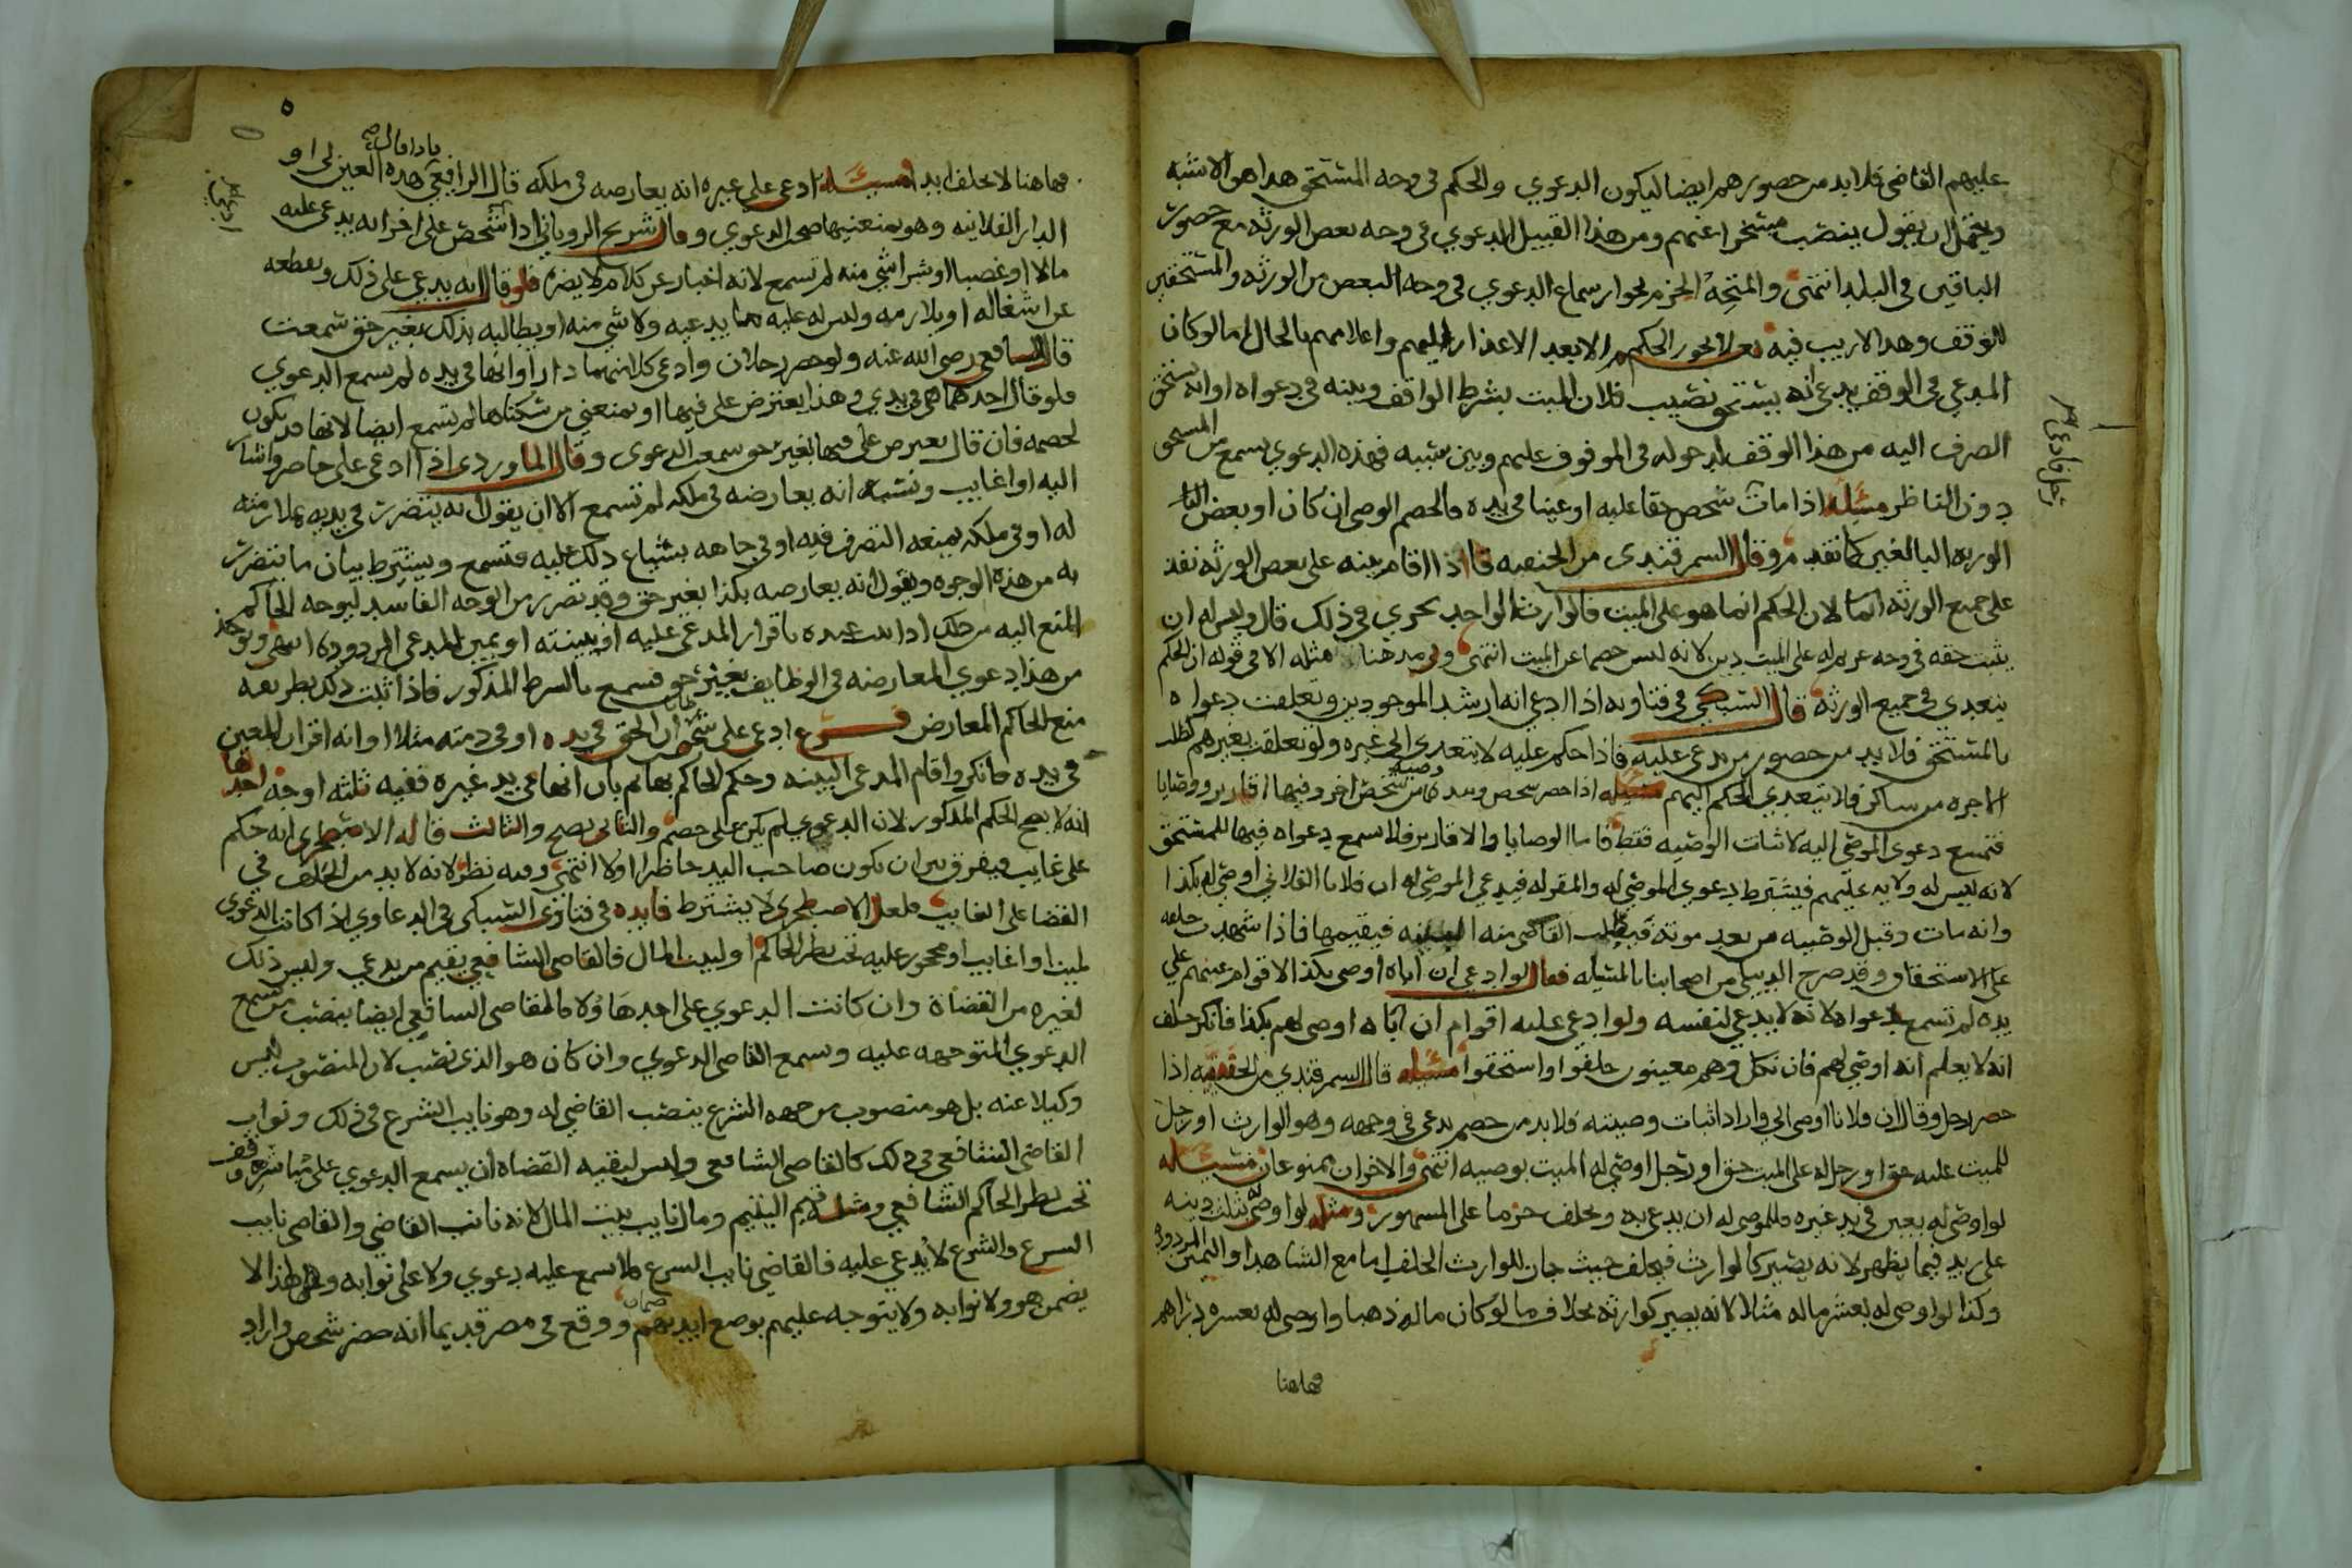 عليهم القاضي فلا بد من حضورهم ايضا ليكون الدعوي والحكم في وجه المستحق هذا هو الاشبه
ويحتمل ان يقول ينصب مسخرا عنهم ومن هذا القبيل الدعوي في وجه بعض الورثه مع حضور
الباقين في البلد انتهى والمتجه الجزم بجواز سماع الدعوي في وجه البعض من الورثه والمستحقين
للوقف وهذا لا ريب فيه نعم لا يجوز الحكم الا بعد الاعذار اليهم واعلامهم بالحال اما لو كان
المدعي في الوقف يدعي انه يستحق نصيب فلان الميت بشرط الواقف وبينه في دعواه او انه يستحق
الصرف اليه من هذا الوقف لدخوله في الموقوف عليهم وبين سببه فهذه الدعوي تسمع من المستحق
دون الناظر مسئله اذا مات شخص حقا عليه او عينا في يده فالخصم الوصي ان كان او بعض
الورثه البالغين كما تقدم وقال السمرقندي من الحنفيه فاذا اقام بينه على بعض الورثه نفذ
على جميع الورثه انما لان الحكم انما هو على الميت فالوارث الواحد يجزي في ذلك قال وليس له ان
يثبت حقه في وجه غريم له على الميت دين لانه ليس خصما عن الميت انتهى ومذهبنا مثله الا في قوله ان الحكم
يتعدي في جميع الورثه قال السبكي في فتاويه اذا ادعي انه ارشد الموجودين وتعلقت دعواه
بالمستحق فلا بد من حضور من يدعي عليه فاذا حكم عليه لا يتعدي الي غيره ولو تعلقت بغيرهم كطلب
الاجره من ساكن فلا يتعدي الحكم اليهم مسئله اذا حضر شخص وبيده وصيه من شخص اخر وفيها اقارير ووصايا
فتسمع دعوي الموصي اليه لاثبات الوصيه فقط فاما الوصايا والاقارير فلا تسمع دعواه فيها للمستحق
لانه ليس له ولايه عليهم فيشترط دعوي الموصي له والمقر له فيدعي الموصي له ان فلانا الفلاني اوصي له بكذا
وانه مات وقبل الوصيه من بعد موته فيطلب القاضي منه البينه فيقيمها فاذا شهدت حلفه
على الاستحقاق وقد صرح الدبيلي من اصحابنا بالمسئله فقال لو ادعي ان اباه اوصي بكذا لاقوام عينهم علي
يده لم تسمع دعواه لانه لا يدعي لنفسه ولو ادعي عليه اقوام ان اباه اوصي لهم بكذا فانكر حلف
انه لا يعلم انه اوصي لهم فان نكل وهم معينون حلفوا واستحقوا مسئله قال السمرقندي من الحنفيه اذا
حضر رجل وقال ان فلانا اوصي الي واراد اثبات وصيته فلا بد من خصم يدعي في وجهه وهو الوارث او رجل
للميت عليه حق او رجل له على الميت حق او رجل اوصي له الميت بوصيه انتهى والاخران ممنوعان مسئله
لو اوصي له بعين في يد غيره فللموصي له ان يدعي به ويحلف جزما على المشهور ومثله لو اوصى بثلث دينه
على زيد فيما يظهر لانه يصير كالوارث فيحلف حيث جاز للوارث الحلف اما مع الشاهد او اليمين المردوده
وكذا لو اوصي له بعشر ماله مثلا لانه يصير كوارثه بخلاف ما لو كان ماله ذهبا واوصي له بعشره دراهم
فهاهنا
فهاهنا لا يحلف ابدا مسئله ادعي على غيره انه يعارضه في ملكه قال الرافعي بان اقال هذه العين لي او
الدار الفلانيه وهو يمنعنيها صح الدعوي وقال شريح الروياني اذا شخص على اخر انه يدعي عليه
مالا او غصبا او شراشي منه لم تسمع لانه اخبار عن كلام لا يضره فلو قال انه يدعي على ذلك ويقطعه
عن اشغاله او يلازمه وليس له عليه ما يدعيه ولا شي منه او يطالبه بذلك بغير حق سمعت
قال الشافعي رضي الله عنه ولو حضر رجلان وادعي كل منهما دارا وانها في يده لم تسمع الدعوي
فلو قال احدهما هي في يدي وهذا يعترض على فيها او يمنعني من سكناها لم تسمع ايضا لانها قد تكون
لخصمه فان قال يعترض على فيها بغير حق سمعت الدعوى وقال الماوردي اذا ادعي على حاضر واشار
اليه او غايب ونسبه انه يعارضه في ملكه لم تسمع الا ان يقول انه يتضرر في يديه بملازمته
له او في ملكه بمنعه التصرف فيه او في جاهه بشياع ذلك عليه فتسمع ويشترط بيان ما يتضرر
به من هذه الوجوه ويقول انه يعارضه بكذا بغير حق وقد تضرر من الوجه الفاسد ليوجه الحاكم
المنع اليه من ذلك اذا ثبت عنده باقرار المدعي عليه او بينته او يمين المدعي المردوده انتهى ويوخذ
من هذا دعوي المعارضه في الوظايف بغير حق فتسمع بالشرط المذكور فاذا ثبت ذلك بطريقه
منع الحاكم المعارض فرع ادعى على شخص ان الحق في يده او في ذمته مثلا او انه اقر ان المعين
في يده فانكر واقام المدعي البينه وحكم الحاكم بها ثم بان انها في يد غيره ففيه ثلثه اوجه احدها
انه لا يصح الحكم المذكور لان الدعوي لم يكن على خصم والثاني يصح والثالث قاله الاصطخري انه حكم
على غايب فيفرق بين ان يكون صاحب اليد حاضرا او لا انتهى وفيه نظر لانه لا بد من الحلف في
القضا على الغايب فلعل الاصطخري لا يشترط فايده في فتاوى السبكي في الدعاوي اذا كانت الدعوي
لميت او غايب او محجور عليه تحت نظر الحاكم او لبيت المال فالقاضي الشافعي يقيم من يدعي وليس ذلك
لغيره من القضاة وان كانت الدعوي على احد هاولا فالقاضي الشافعي ايضا ينصب من تسمع
الدعوي المتوجهه عليه وتسمع القاضي الدعوي وان كان هو الذي نصب لان المنصوب ليس
وكيلا عنه بل هو منصوب من جهه الشرع ينصب القاضي له وهو نايب الشرع في ذلك ونواب
القاضي الشافعي في ذلك كالقاضي الشافعي وليس لبقيه القضاه ان يسمع الدعوي على مباشر وقف
تحت نظر الحاكم الشافعي ومثله قيم اليتيم ومال نايب بيت المال لانه نايب القاضي والقاضي نايب
الشرع والشرع لا يدعي عليه فالقاضي نايب الشرع فلا تسمع عليه دعوي ولا على نوابه ولهذا لا
يضمن هو ولا نوابه ولا يتوجه عليهم بوضع ايديهم ضمان ووقع في مصر قديما انه حضر شخص واراد